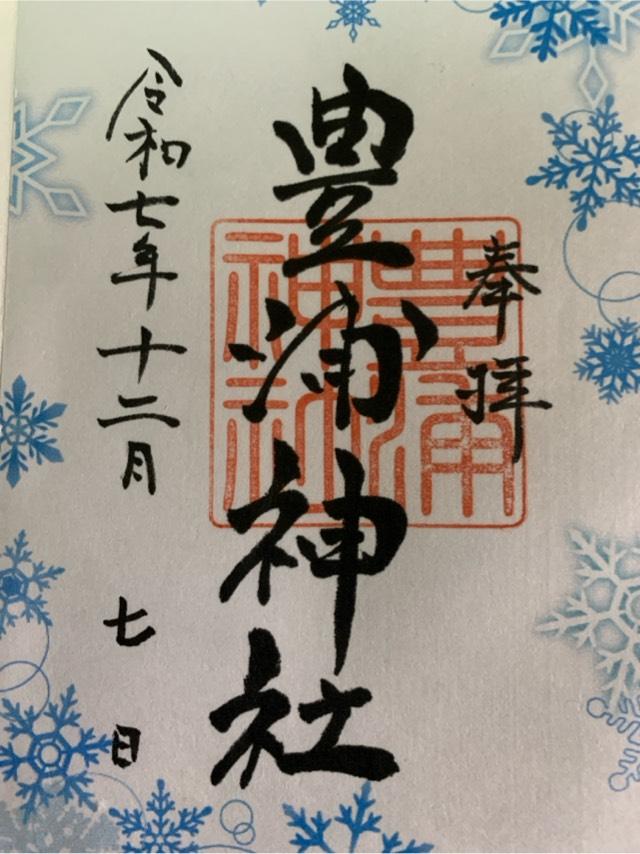 奉拝
豊浦神社
豊浦
神社
令和七年十二月 七 日